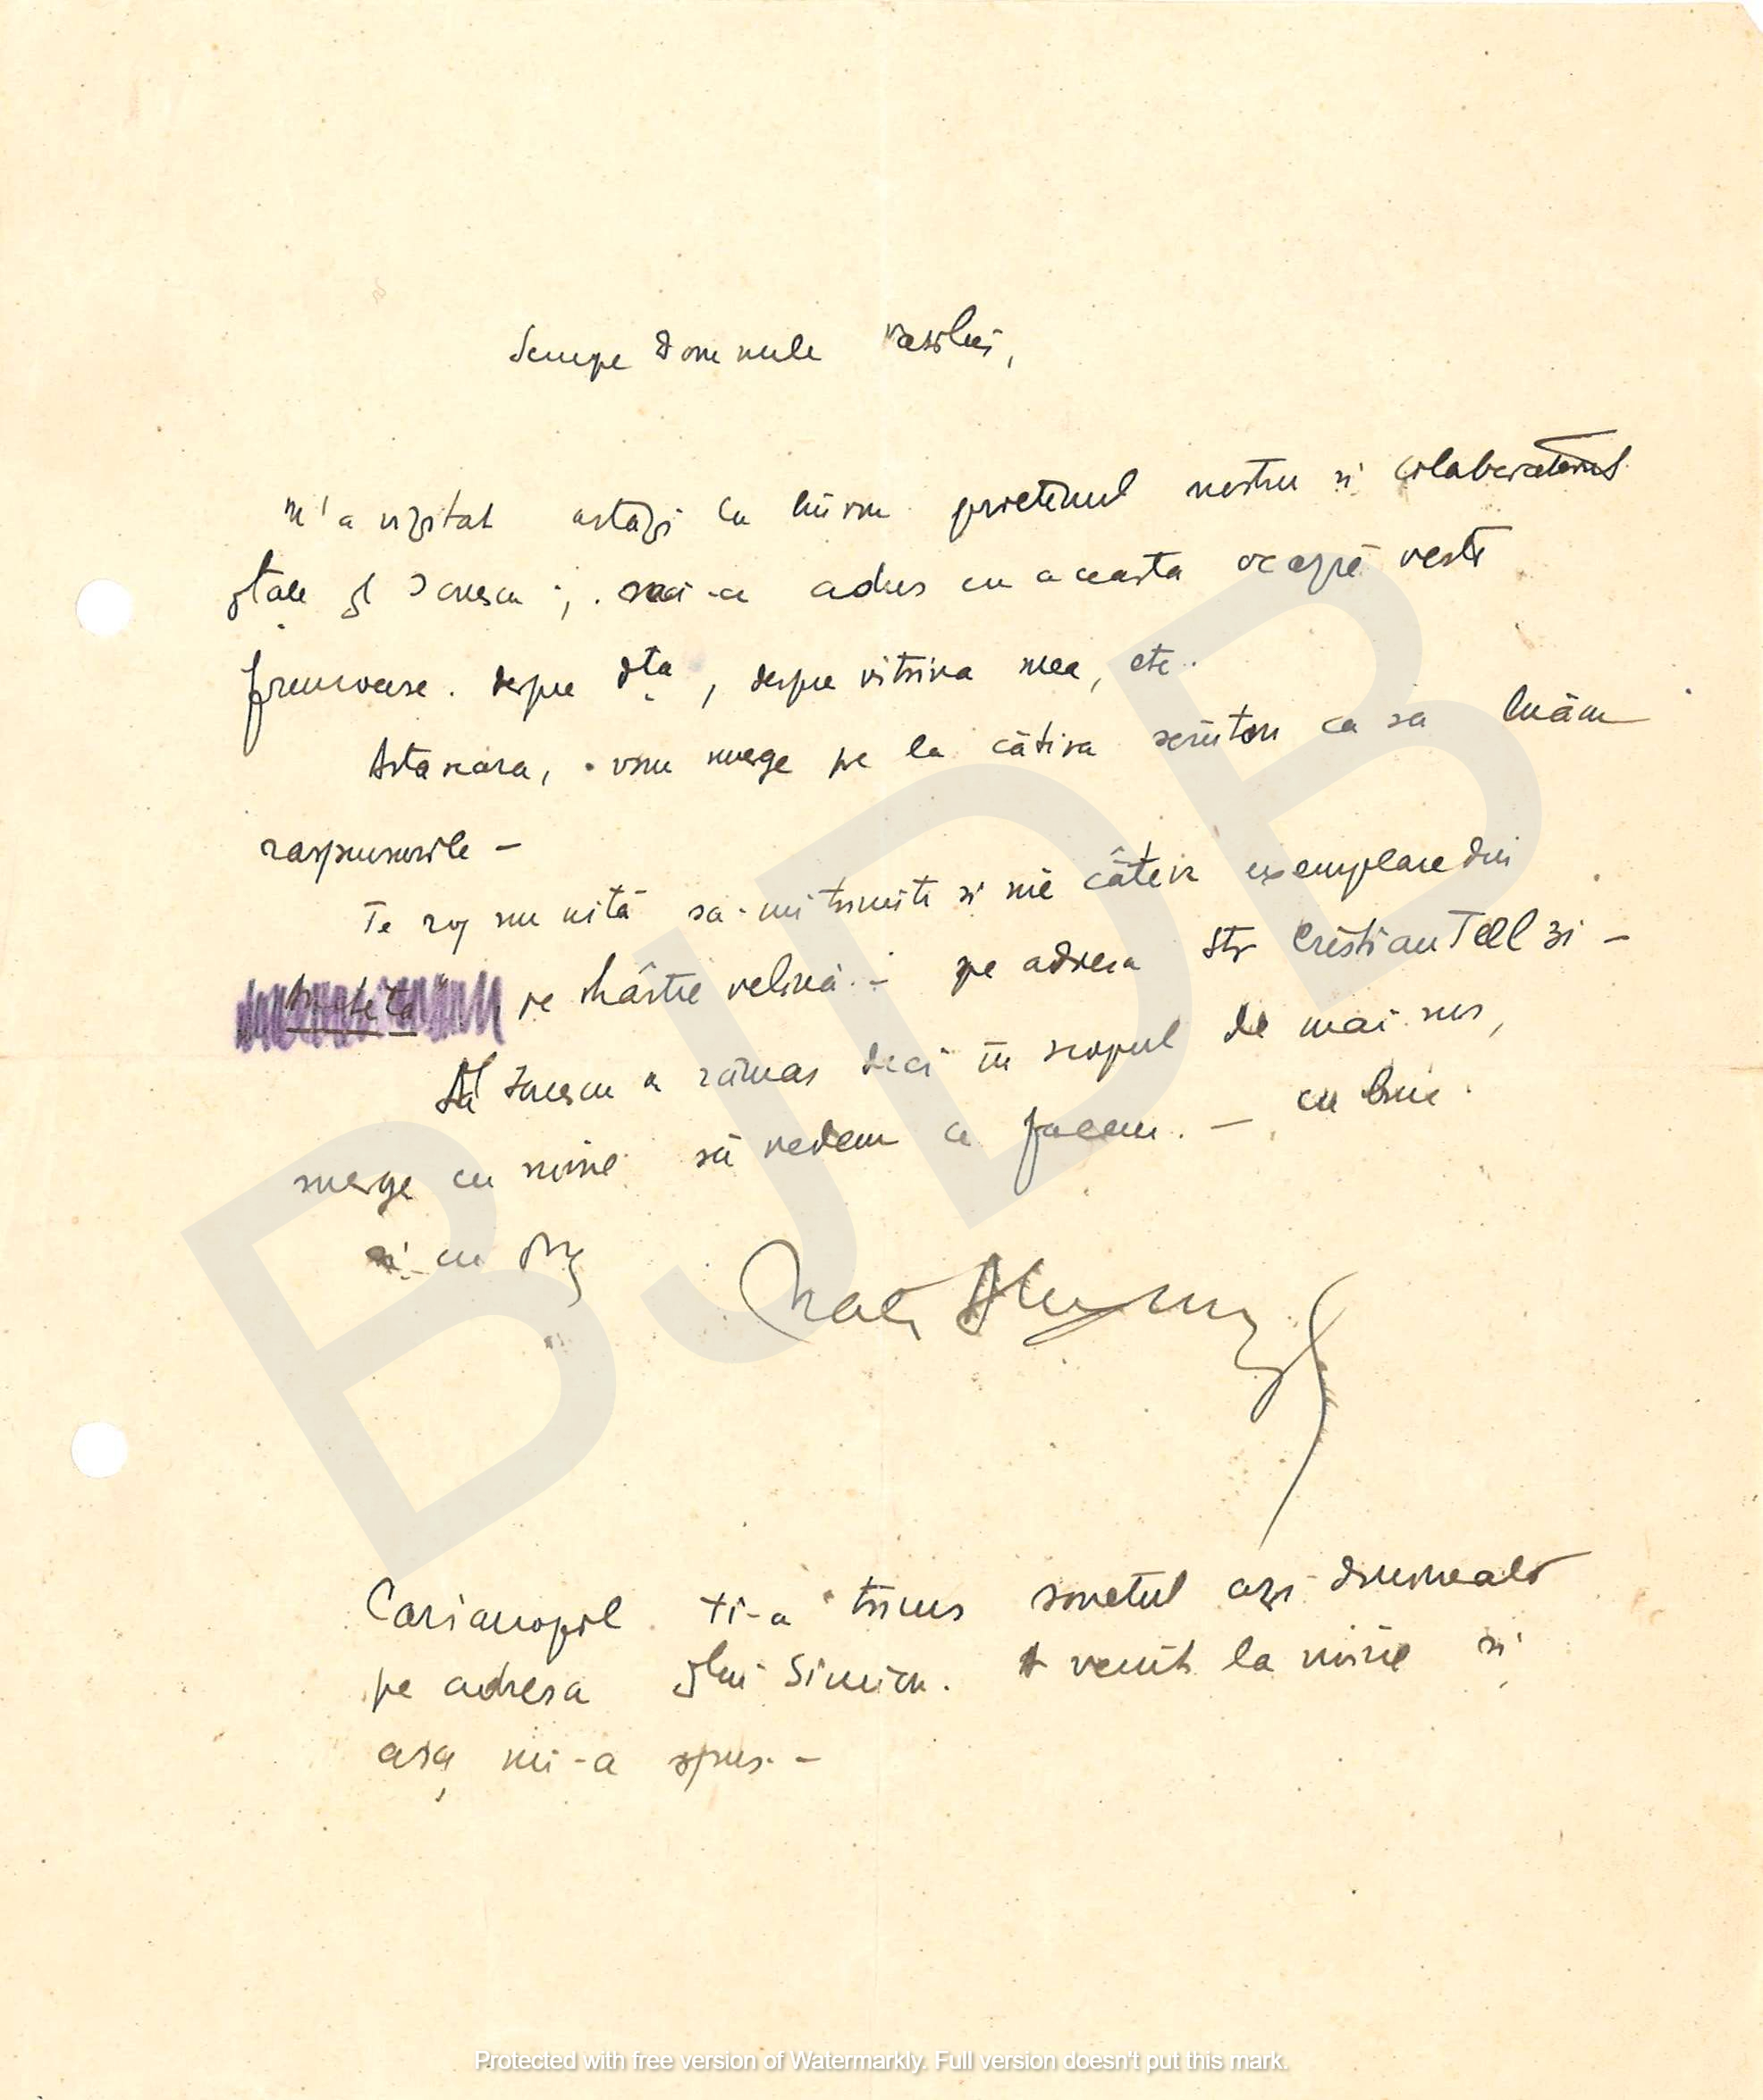 Scumpe Domnule Vasiliu,
M'a vizitat astăzi la birou prietenul nostru si colaboratorul
dtale dl Ionescu; mi-a adus cu aceasta ocazie vesti
frumoase. despre dta, despre vitrina mea, etc.
Astaseara, vom merge pe la câtiva scriitori ca sa luăm
raspunsurile -
Te rog nu uită sa-mi trimiti si mie câteva exemplare din
pe hârtie velină. - pe adresa Str Cristian Tell 31 -
Dl Ionescu a rămas deci în scopul de mai sus,
merge cu mine să vedem ce facem. - cu bine
si cu drag
BJDB
Carianopol ti-a trimis sonetul azi dimineaţă
pe adresa dlui Simion. A venit la mine si
aşa mi-a spus. -
Protected with free version of Watermarkly. Full version doesn't put this mark.